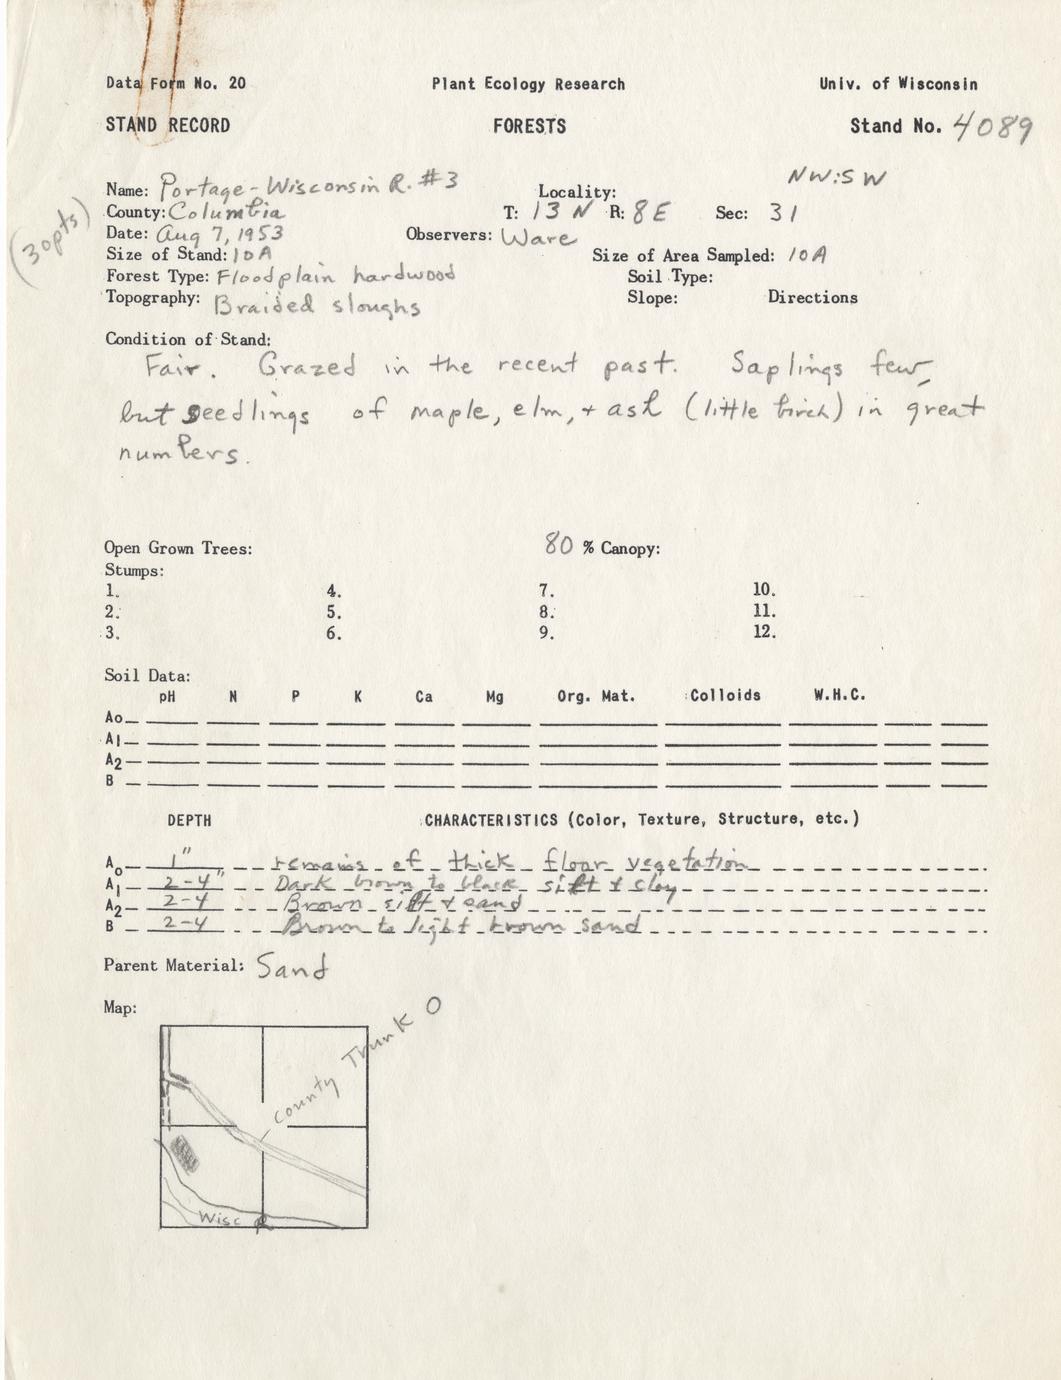 Data Form No. 20 Plant Ecology Research Univ. of Wisconsin
STAND RECORD FORESTS Stand No. 4089
NW:SW
Name: Portage-Wisconsin R. #3 Locality:
County: Columbia T: 13 N R: 8 E Sec: 31
(30pts)
Date: Aug 7, 1953 Observers: Ware
Size of Stand: 10A Size of Area Sampled: 10A
Forest Type: Floodplain hardwood Soil Type:
Topography: Braided sloughs Slope: Directions
Condition of Stand:
Fair. Grazed in the recent past. Saplings few,
but seedlings of maple, elm, + ash (little birch) in great
numbers.
Open Grown Trees: 80 % Canopy:
Stumps:
1. 4. 7. 10.
2. 5. 8. 11.
3. 6. 9. 12.
Soil Data:
pH N P K Ca Mg Org. Mat. Colloids W.H.C.
Ao
A1
A2
B
DEPTH CHARACTERISTICS (Color, Texture, Structure, etc.)
Ao 1" remains of thick floor vegetation
A1 2-4" Dark brown to black silt & clay
A2 2-4 Brown silt & sand
B 2-4 Brown to light brown sand
Parent Material: Sand
Map:
County Trunk O
Wisc R